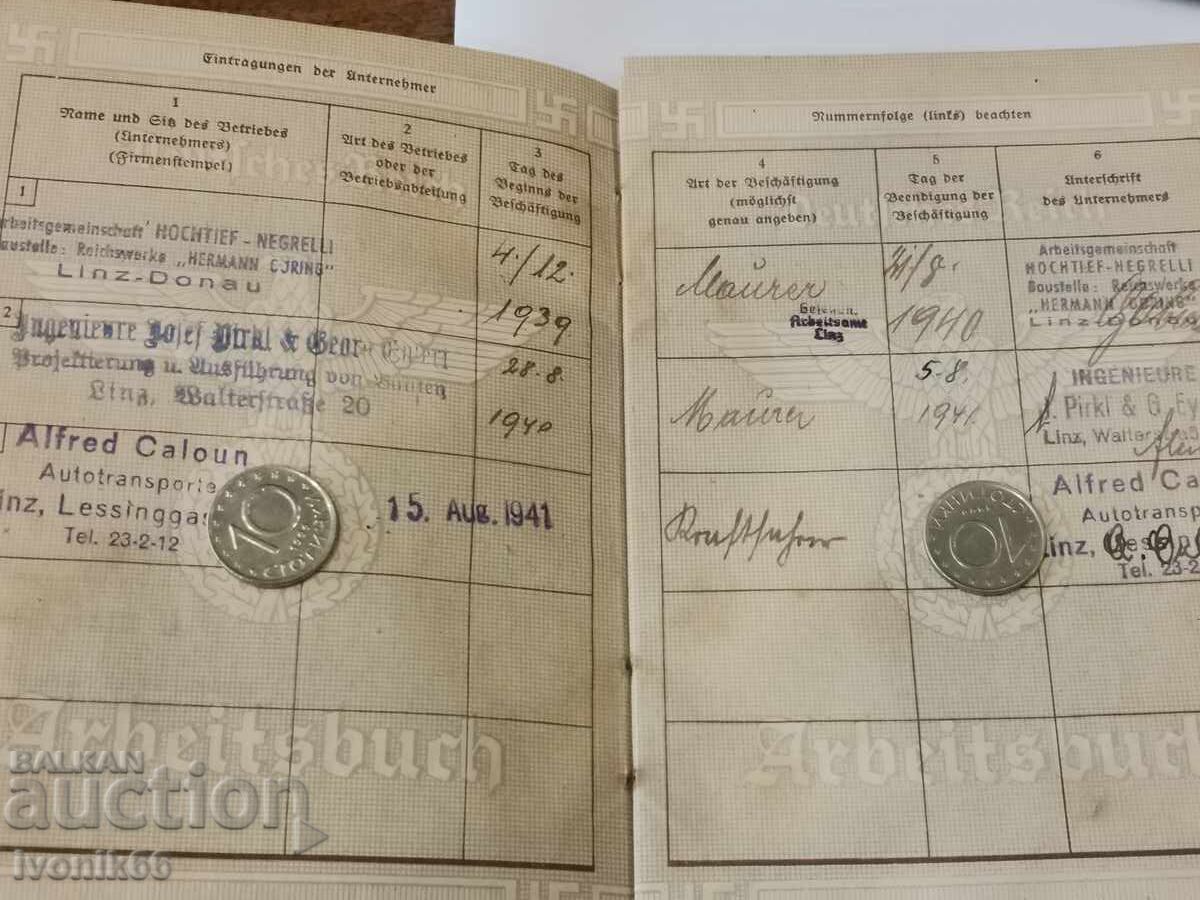 Eintragungen der Unternehmer
1
Name und Sitz des Betriebes
(Unternehmers)
(Firmenstempel)
2
Art des Betriebes
oder der
Betriebsabteilung
3
Tag des
Beginns der
Beschäftigung
1
Arbeitsgemeinschaft HOCHTIEF-NEGRELLI
Baustelle: Reichswerke „HERMANN GÖRING"
Linz-Donau
4./12.
1939
2
Ingenieure Josef Pirkl & Georg
Projektierung u. Ausführung von Bauten
Linz, Walterstraße 20
28.8.
1940
Alfred Caloun
Autotransporte
Linz, Lessinggas
Tel. 23-2-12
15. Aug. 1941
10
СТОТИНКИ
1999
Arbeitsbuch
Nummernfolge (links) beachten
4
Art der Beschäftigung
(möglichst
genau angeben)
5
Tag der
Beendigung der
Beschäftigung
6
Unterschrift
des Unternehmers
Deutsches Reich
Maurer
Arbeitsamt
Linz
31/8.
1940
Arbeitsgemeinschaft
HOCHTIEF-NEGRELLI
Baustelle: Reichswerke
"HERMANN GÖRING"
Linz
Maurer
5.8.
1941.
INGENIEURE
J. Pirkl & G. Ey
Linz, Walterstraß
Kraftfahrer
10
СТОТИНКИ
1999
Alfred Ca
Autotransp
Linz,
Tel. 23-2
Arbeitsbuch
BALKAN
auction
ivonik66